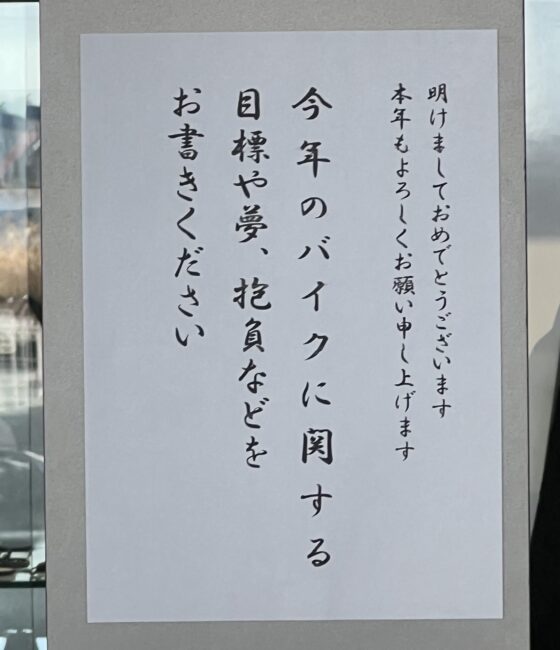 明けましておめでとうございます
本年もよろしくお願い申し上げます
今年のバイクに関する
目標や夢、抱負などを
お書きください